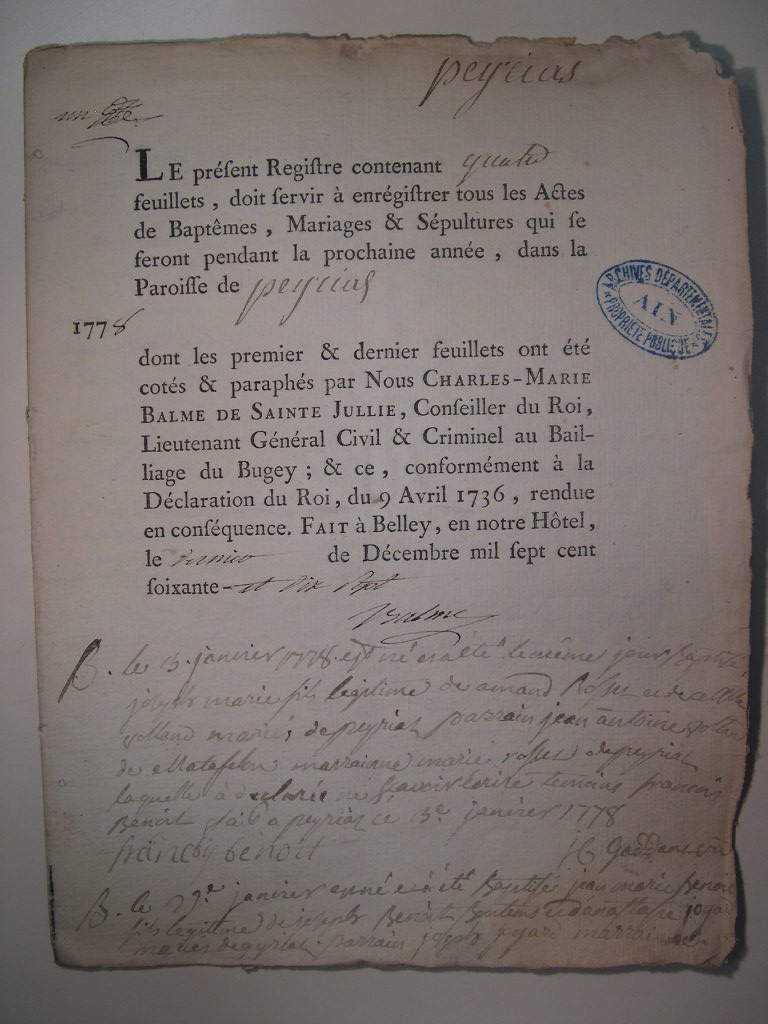 peyrias
un
LE préſent Regiſtre contenant quatre
feuillets, doit ſervir à enrégiſtrer tous les Actes
de Baptêmes, Mariages & Sépultures qui ſe
feront pendant la prochaine année, dans la
Paroiſſe de peyrias
1778
ARCHIVES DÉPARTEMENTALES
AIN
PROPRIÉTÉ PUBLIQUE
dont les premier & dernier feuillets ont été
cotés & paraphés par Nous CHARLES-MARIE
BALME DE SAINTE JULLIE, Conſeiller du Roi,
Lieutenant Général Civil & Criminel au Bail-
liage du Bugey ; & ce, conformément à la
Déclaration du Roi, du 9 Avril 1736, rendue
en conſéquence. FAIT à Belley, en notre Hôtel,
le de Décembre mil ſept cent
ſoixante-et dix sept
Balme
B. le janvier 1778 est né et a été le même jour Baptisé
joseph marie fils legitime de amand Rosset et de
rolland mariés de peyriat parrain jean antoine rolland
de Matafelon marrainne marie rosset de peyriat
laquelle à declarée ne sçavoir ecrire temoins francois
Benoit fait a peyriat ce janvier 1778
francoy benoit
B. le janvier est né et a été Baptisé jean marie Benoit
fils legitime de joseph Benoit et joyard
mariés de peyriat parrain joseph joyard marrainne